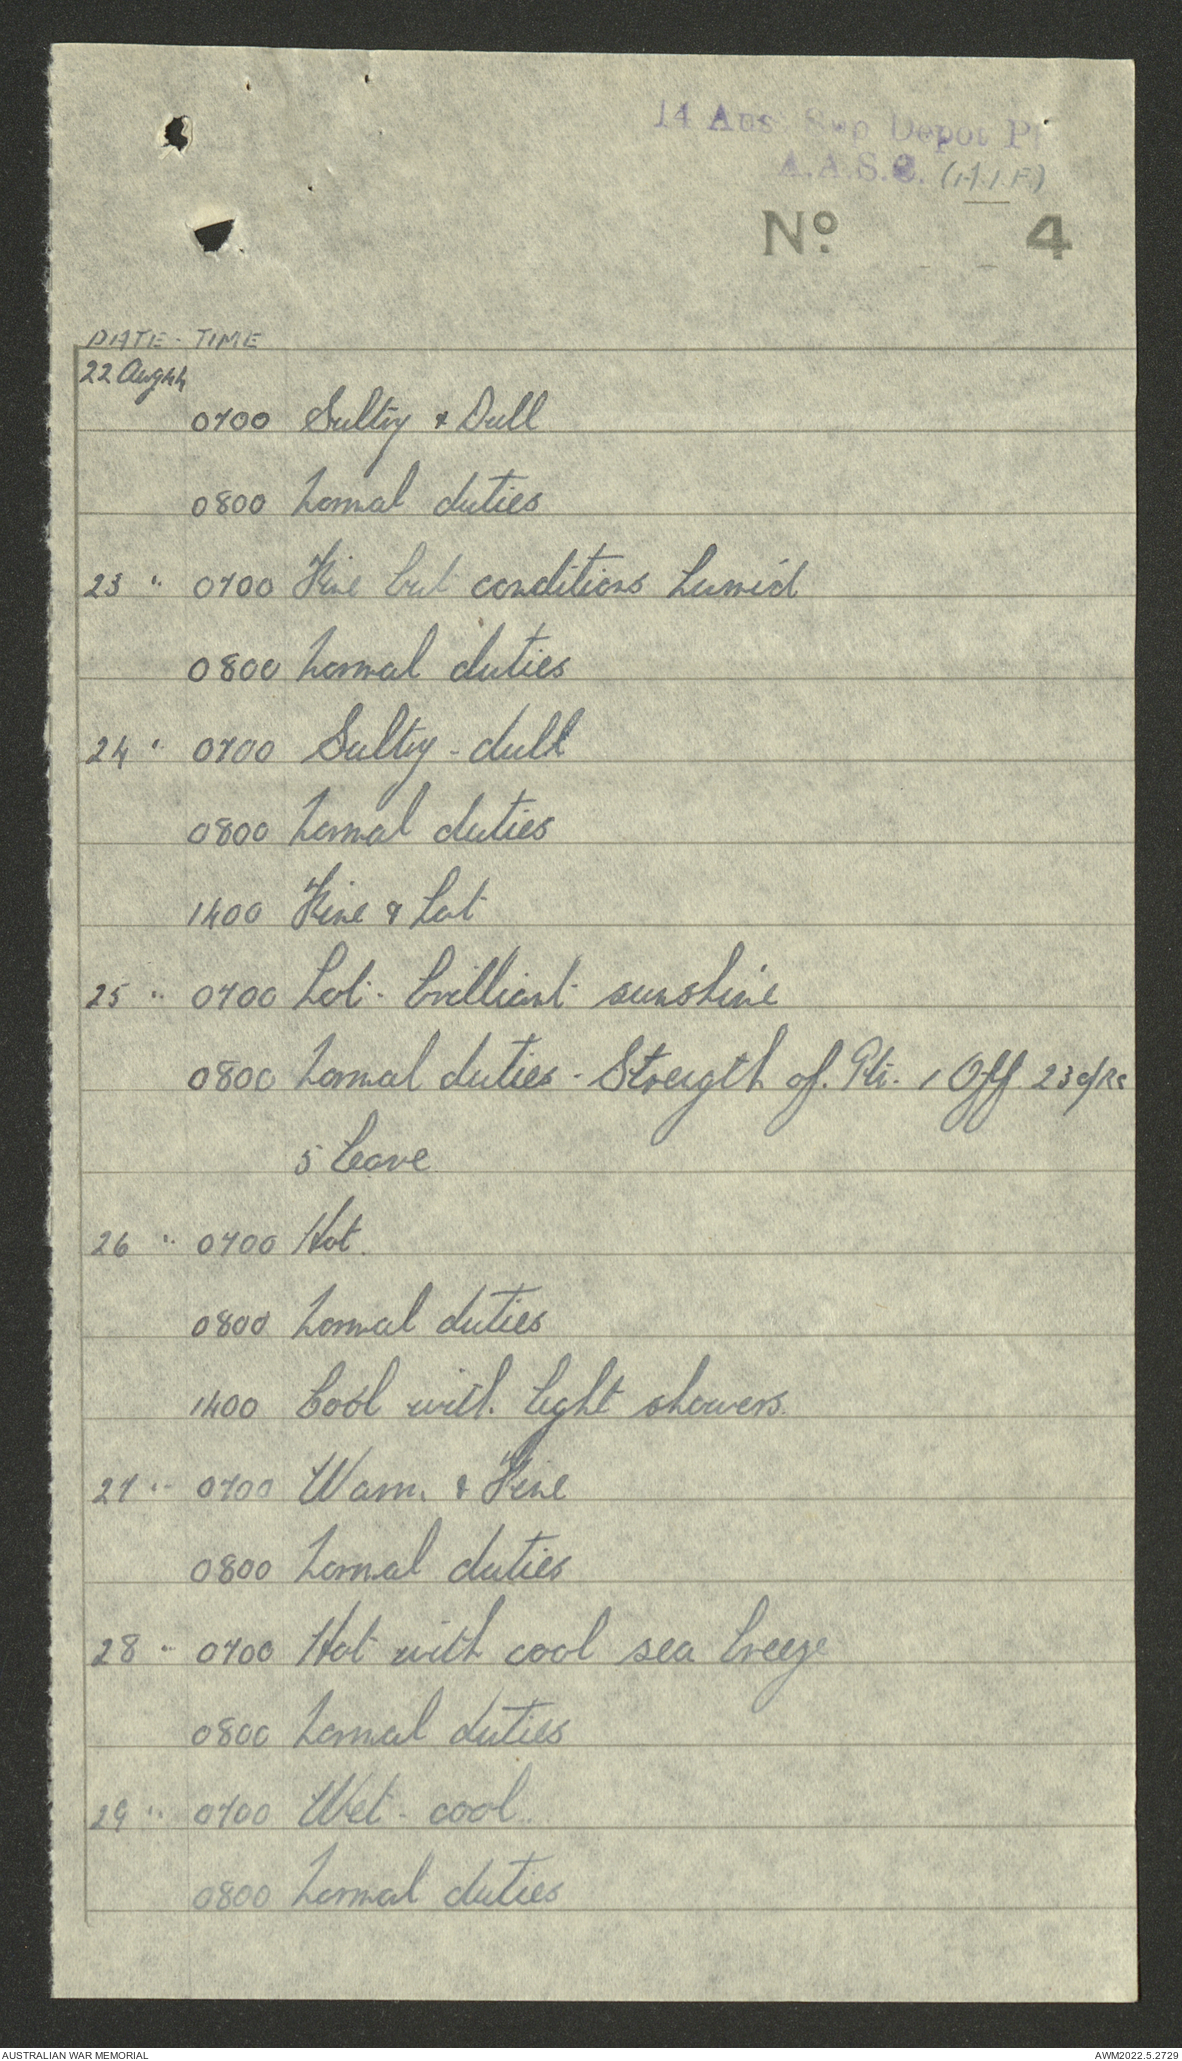 14 Aus Sup Depot Pl
A.A.S.C. (A.I.F.)
No. 4
DATE - TIME
22 Aug 44
0700 Sultry & Dull
0800 Normal duties
23 " 0700 Fine but conditions humid
0800 Normal duties
24 " 0700 Sultry - dull
0800 Normal duties
1400 Fine & hot
25 " 0700 Hot - brilliant sunshine
0800 Normal duties - Strength of Pln. 1 Off 23 o/Rs
5 leave
26 " 0700 Hot.
0800 Normal duties
1400 Cool with light showers.
27 " 0700 Warm & Fine
0800 Normal duties
28 " 0700 Hot with cool sea breeze
0800 Normal duties
29 " 0700 Wet - cool..
0800 Normal duties
AUSTRALIAN WAR MEMORIAL AWM2022.5.2729